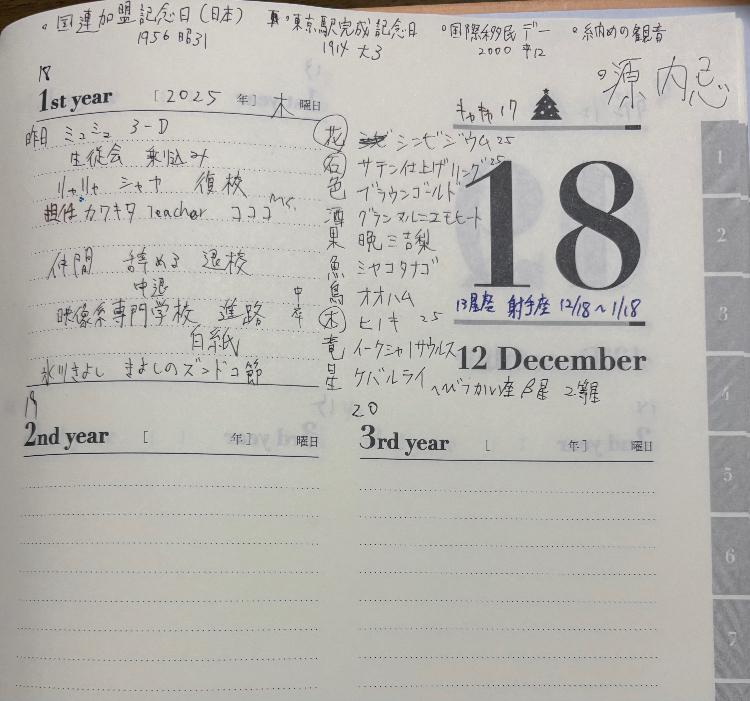 。国連加盟記念日(日本) 。東京駅完成記念日 。国際移民デー 。納めの観音
1956 昭31 1914 大3 2000 平12
。源内忌
18
1st year [2025 年] 木 曜日
昨日 ミュミュ 3-D
生徒会 乗り込み
リャリャ シャヤ 復校
担任 カワキタ Teacher ココア
仲間 辞める 退校
中退
映像系専門学校 進路 中卒
白紙
氷川きよし きよしのズンドコ節
キャラ 17
花 シンビジウム 25
石 サテン仕上げリング 25
色 ブラウンゴールド
酒 グランマルニエモヒート
果 晩三吉梨
魚 ミヤコタナゴ
鳥 オオハム
木 ヒノキ 25
竜 イークシャーノサウルス
星 ケバルライ へびつかい座β星 2等星
18
13星座 射手座 12/18~1/18
12 December
19
2nd year [ 年] 曜日
20
3rd year [ 年] 曜日
1
2
3
4
5
6
7